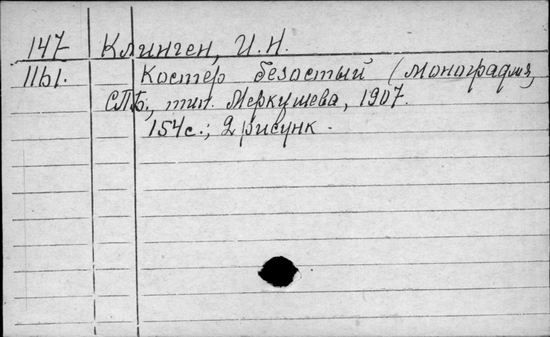 147 Клинген, И.Н.
1161. Костер безостый (монография,
СПБ, тип. Меркушева, 1907.
154с.; 2 рисунк.